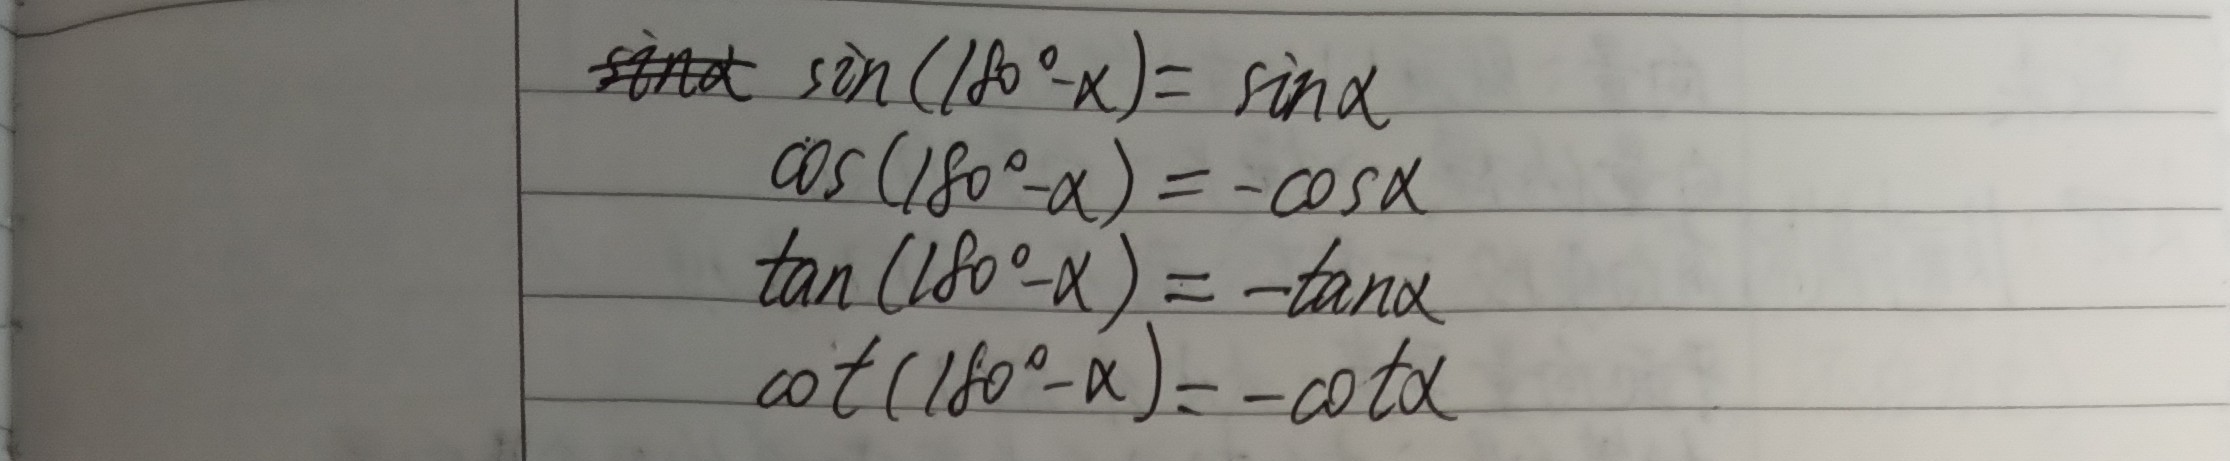 sin(180°-α)= sinα
cos(180°-α) = -cosα
tan(180°-α) = -tanα
cot(180°-α)= -cotα